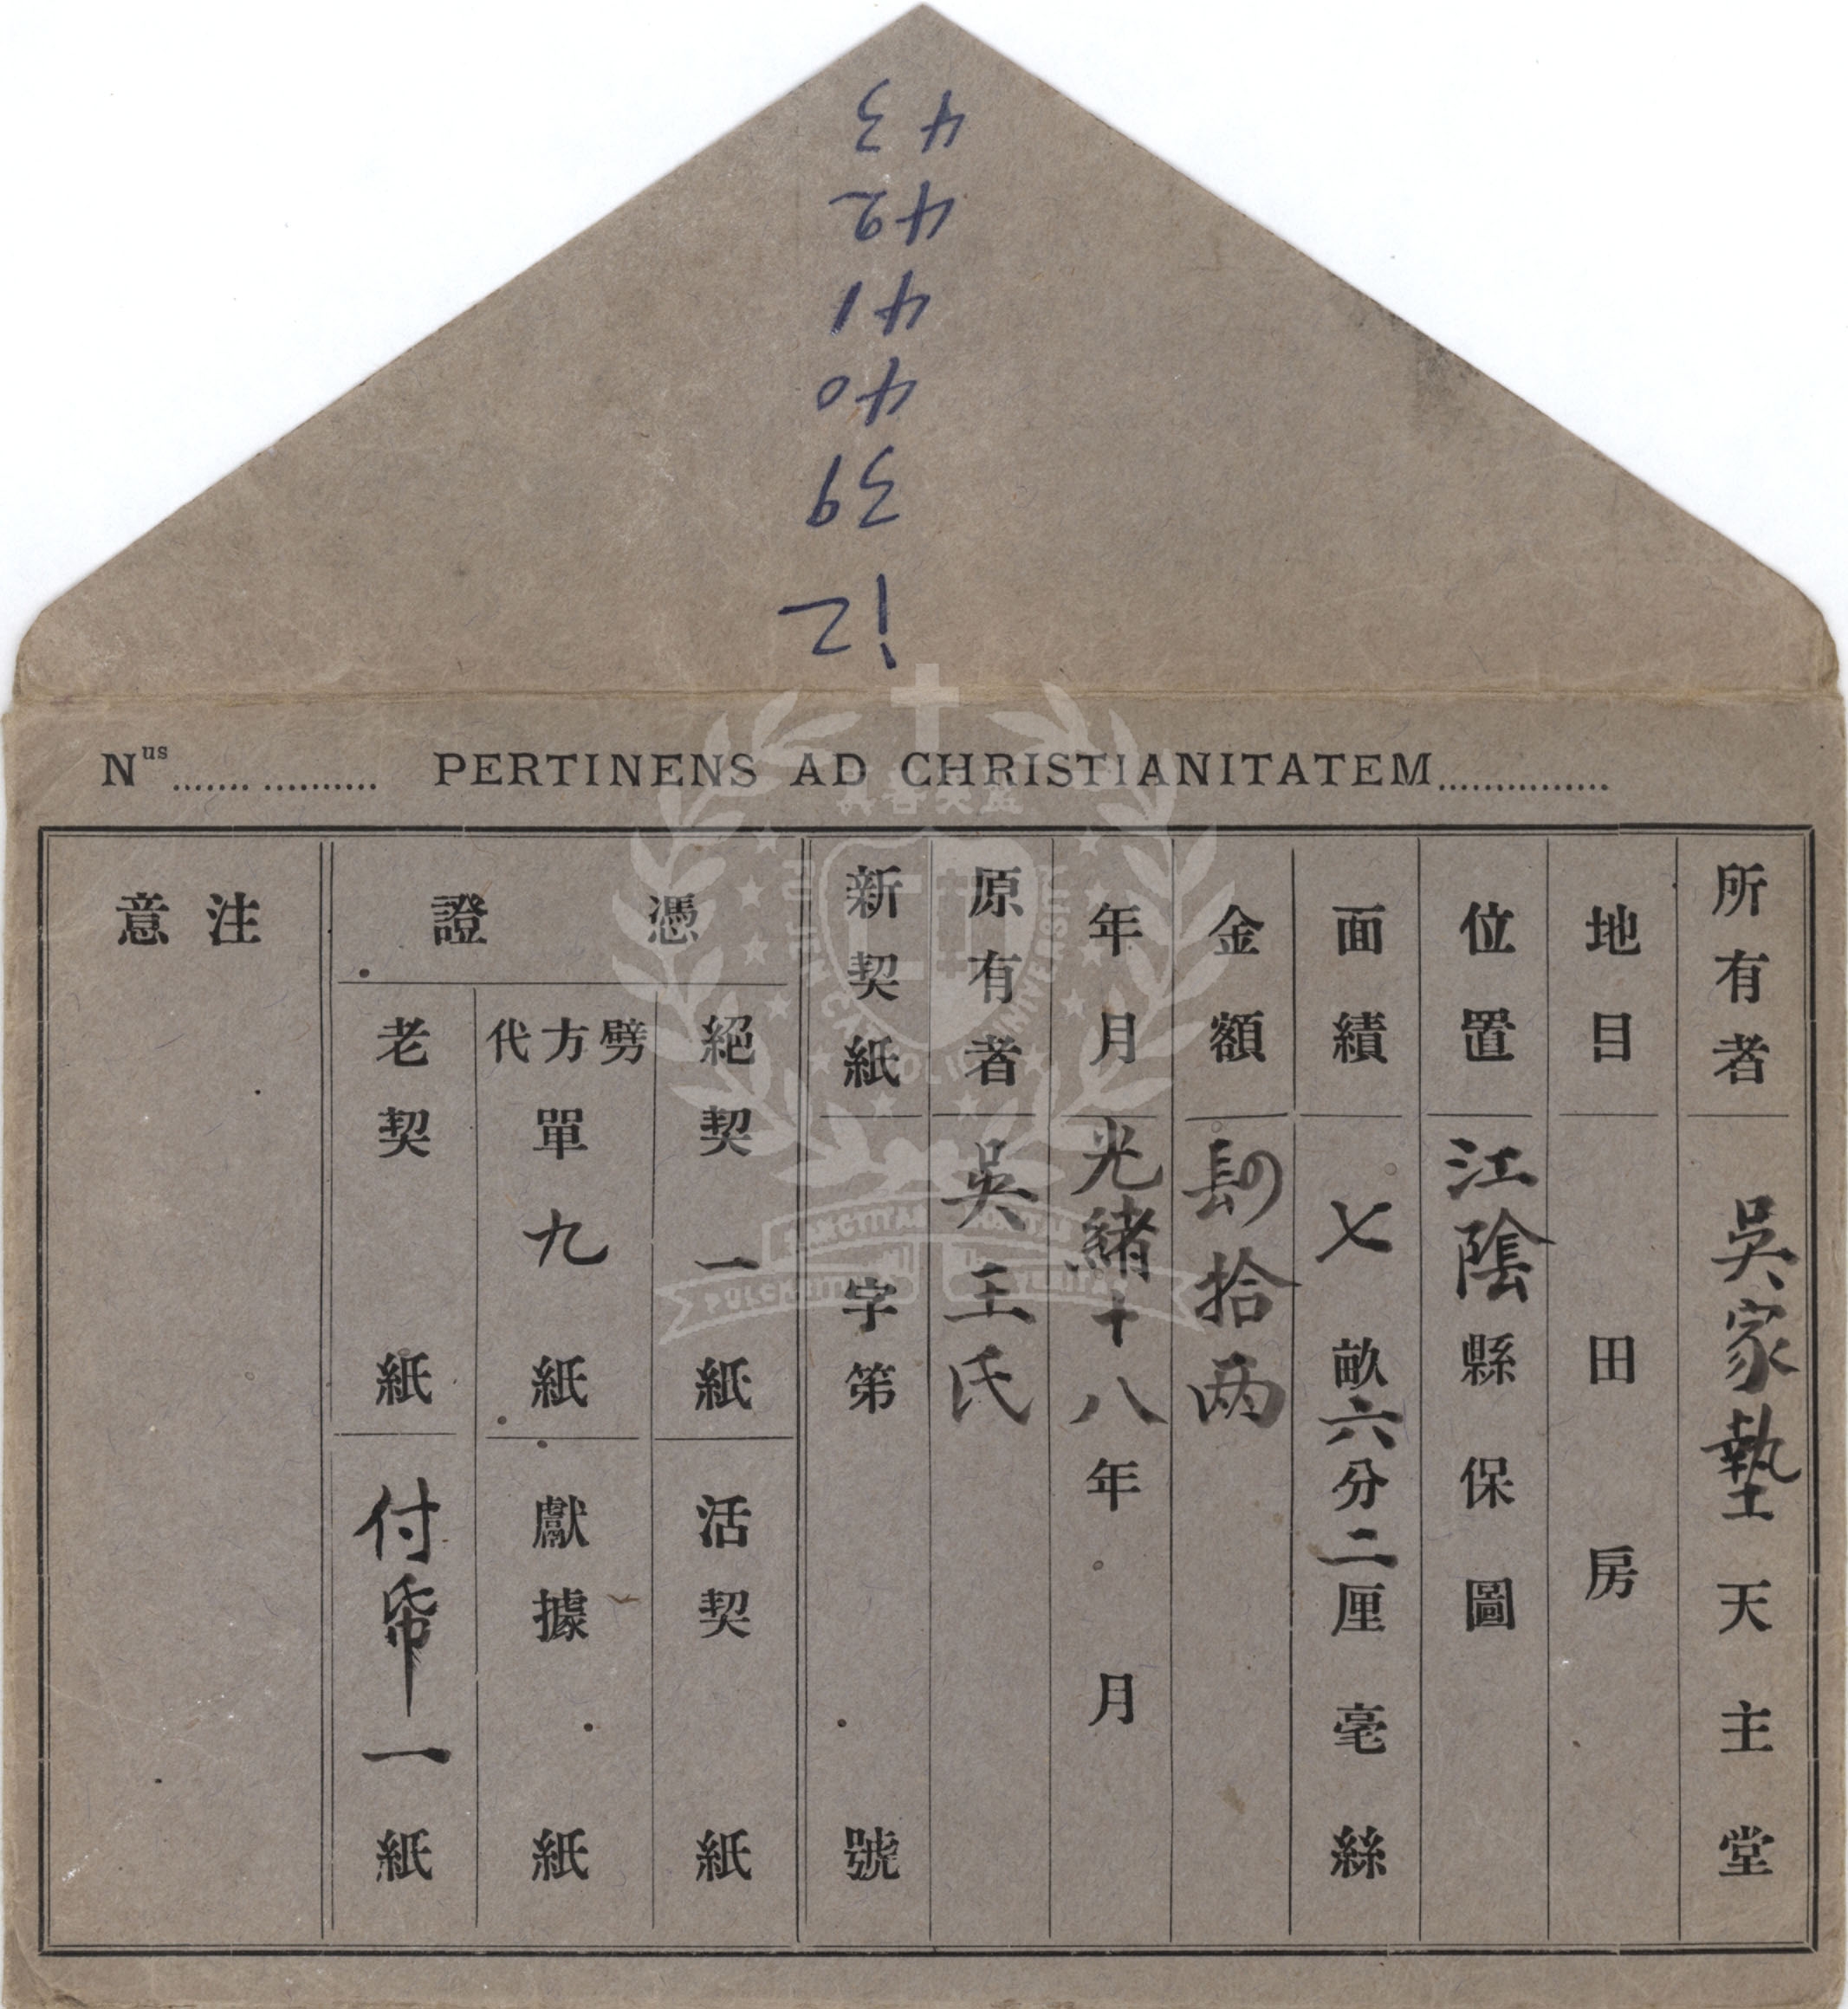 12
39
40
41
42
43
Nus PERTINENS AD CHRISTIANITATEM
所有者 吳家墊天主堂
地目 田 房
位置 江陰縣 保 圖
面績 七畝六分二厘 毫 絲
金額 肆拾两
年月 光緒十八年 月
原有者 吳王氏
新契紙 字笫 號
憑證
絕契 一紙 活契 紙
劈方代單 九紙 獻據 紙
老契 紙 付帋一紙
注意
真善美聖
FU JEN CATHOLIC UNIVERSITY